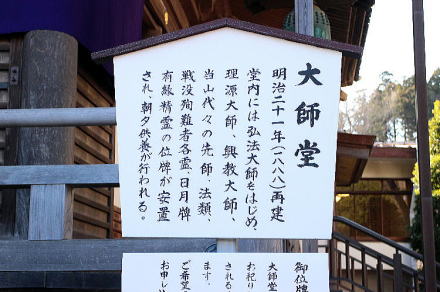 大師堂
明治二十一年(一八八八)再建
堂内には弘法大師をはじめ、
理源大師、興教大師、
当山代々の先師、法類、
戦没殉難者各霊、日月牌
有縁精霊の位牌が安置
され、朝夕供養が行われる。
御位牌
大師堂
お祀り
される
ます。
ご希望
お申し